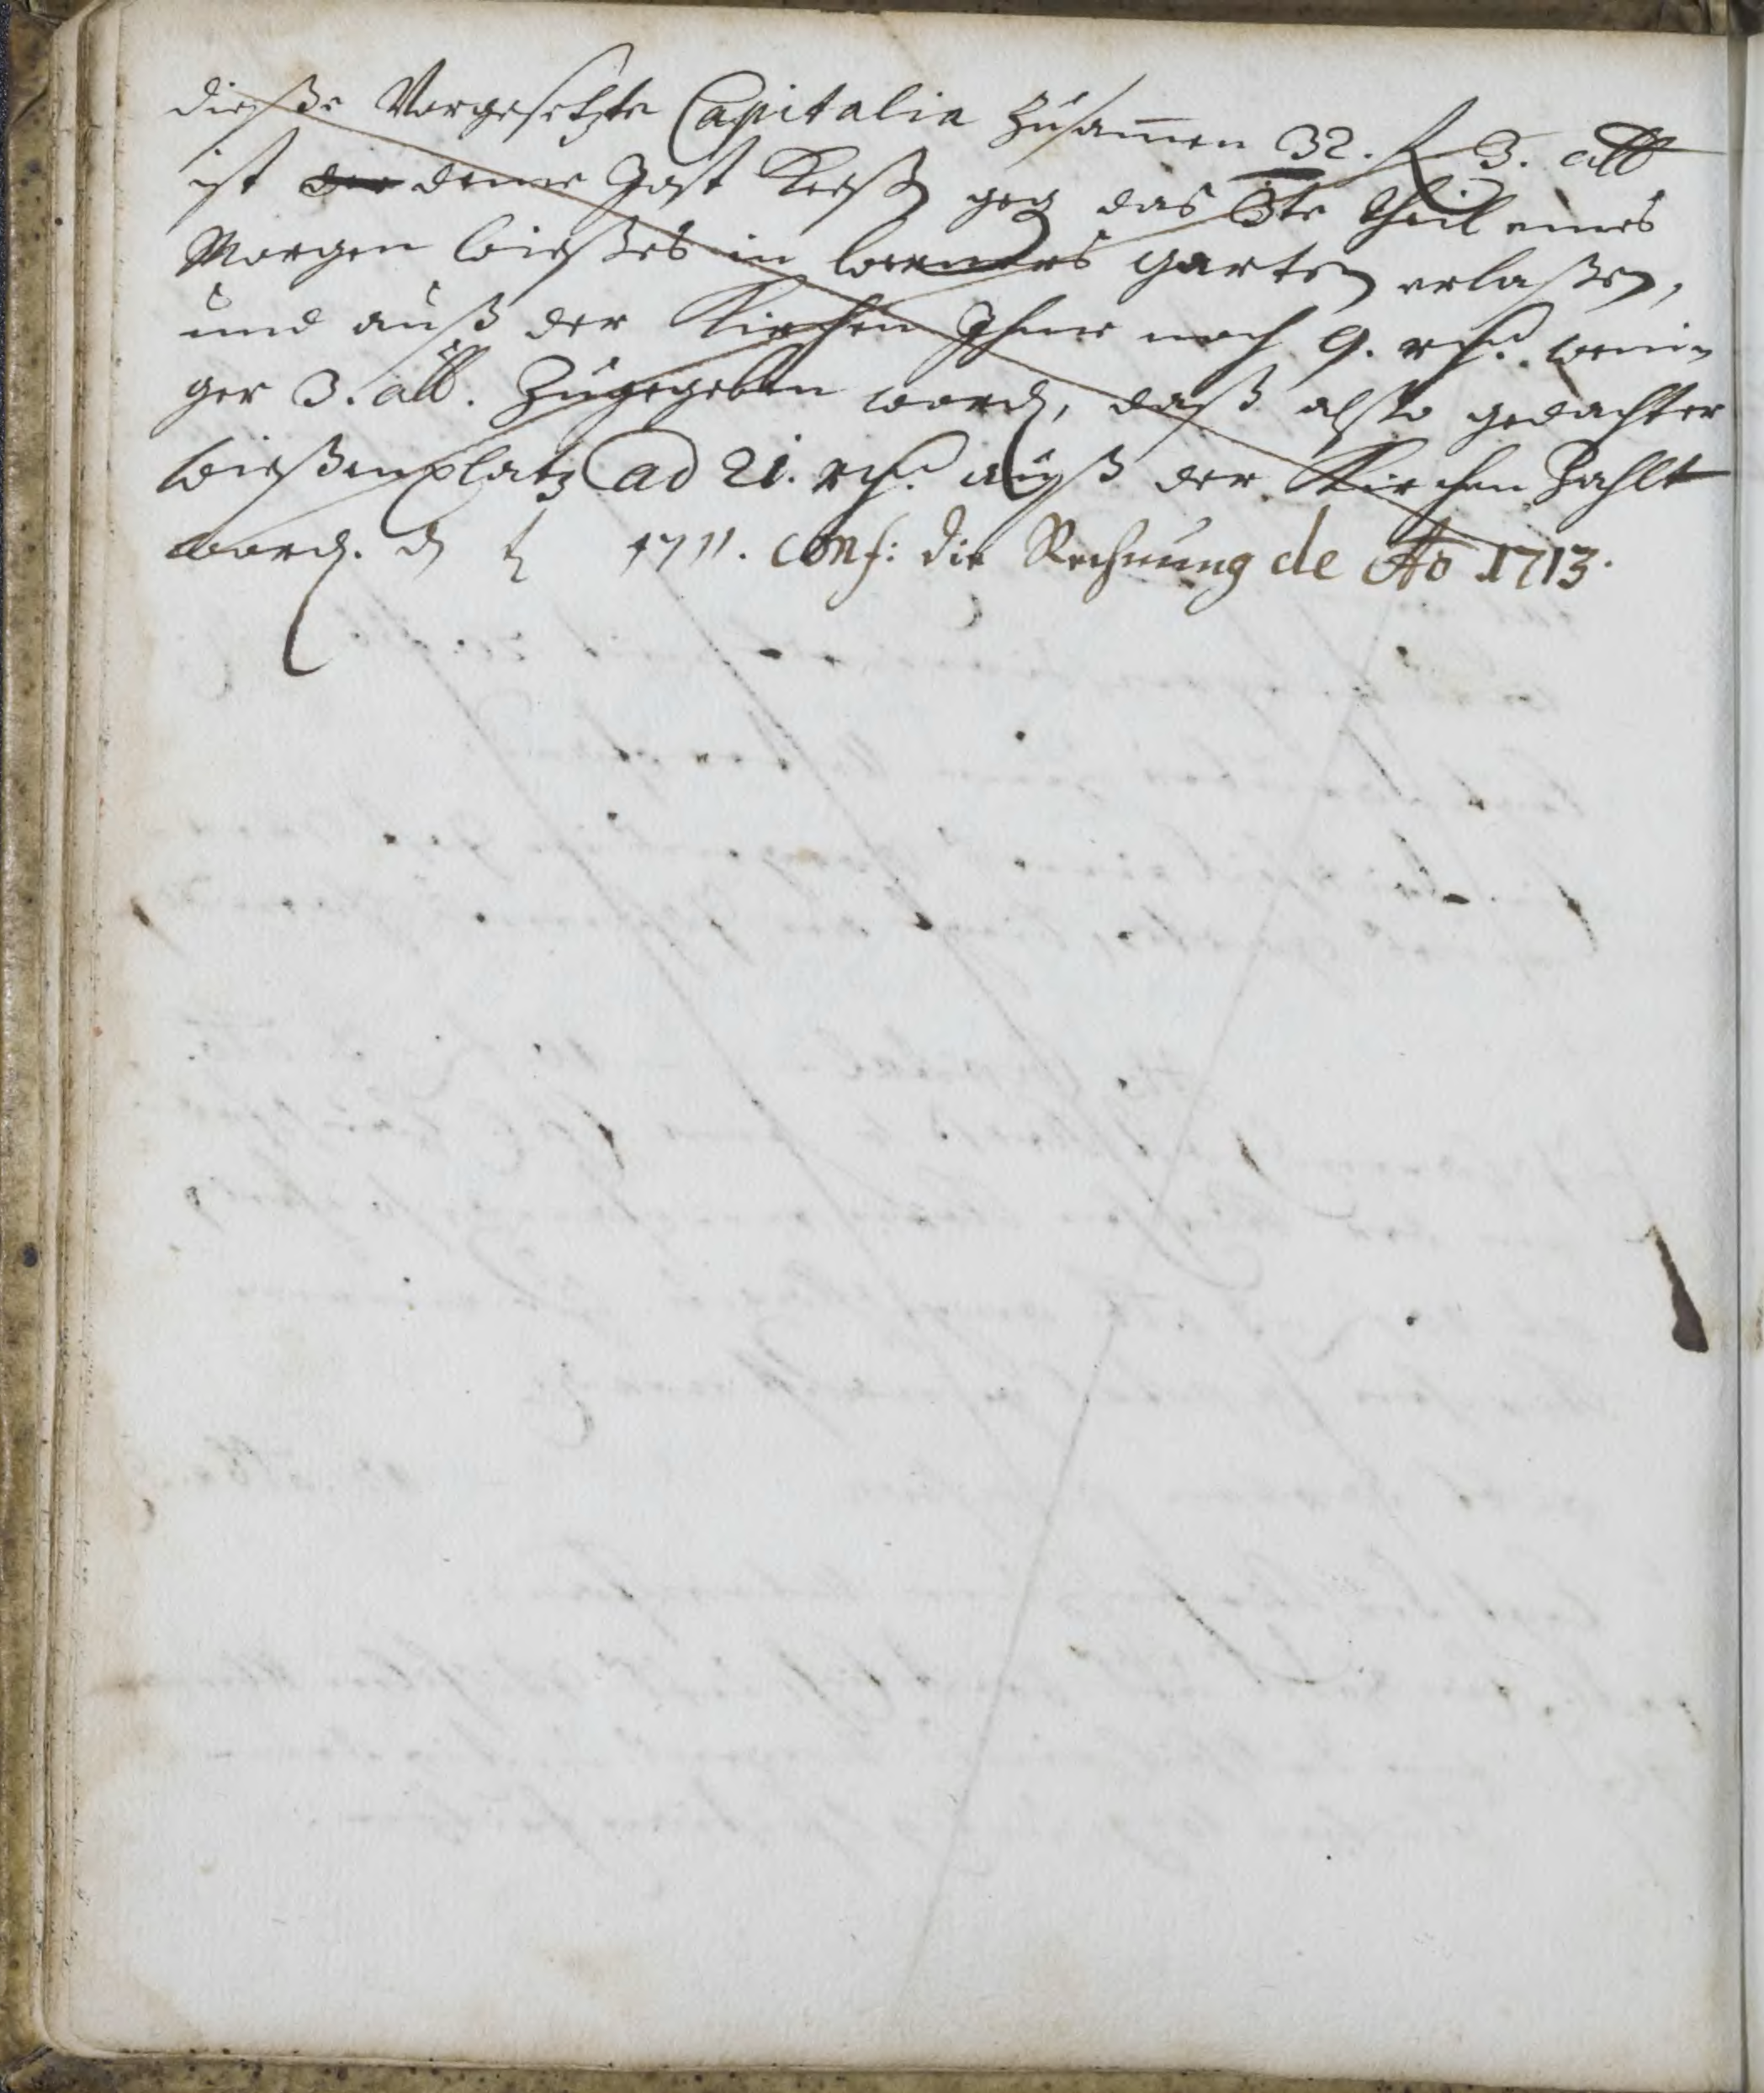 dieße Vorgesetzte Capitalia Zusamen 32. f 3. alb
ist der deme Jost geg das 3te theil eines
Morgen wießes in garten erlaßen,
und auß der Kirchen Ihme noch 9. rth. weni-
ger 3. alb. Zugegeben word, daß alßo gedachter
wießenplatz ad 21. rth. auß der Kirchen Zahlt
word. d 1711. conf: die Rechnung de Ao 1713.